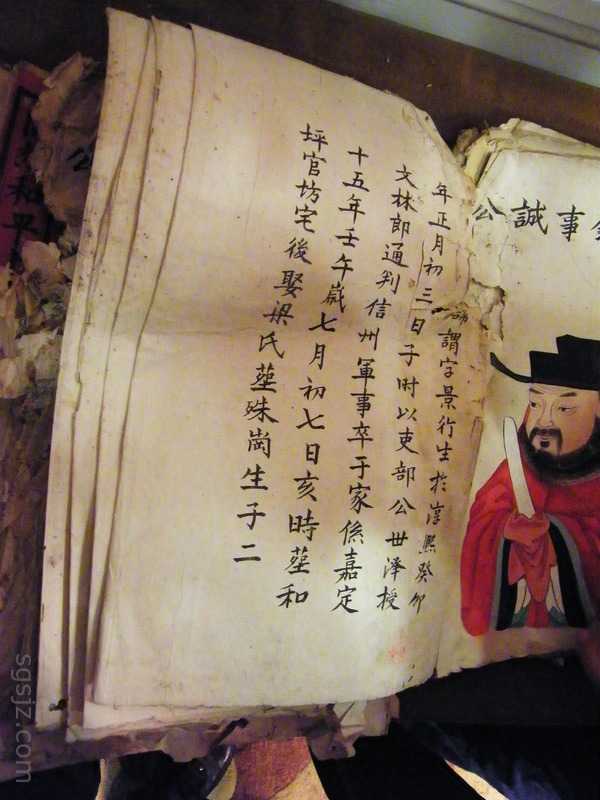 事誠公
謂字景行生扵淳熙癸卯
年正月初三日子时以吏部公世澤授
文林郎通判信州軍事卒于家係嘉定
十五年壬午歲七月初七日亥時塟和
坪官坊宅後娶梁氏塟殊崗生子二
和平
sgsjz.com